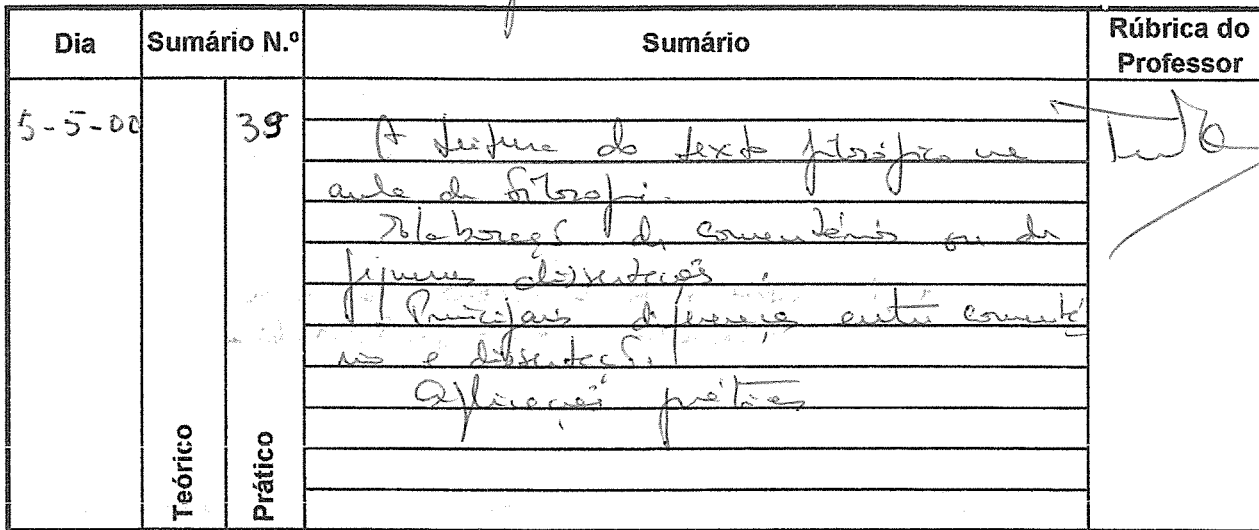 Dia Sumário N.º Sumário Rúbrica do Professor
5-5-00 39 A leitura do texto filosófico na
aula de filosofia.
Elaboração de comentários ou de
pequenas dissertações.
Principais diferenças entre comentá
rio e dissertação.
Aplicações práticas
Teórico Prático